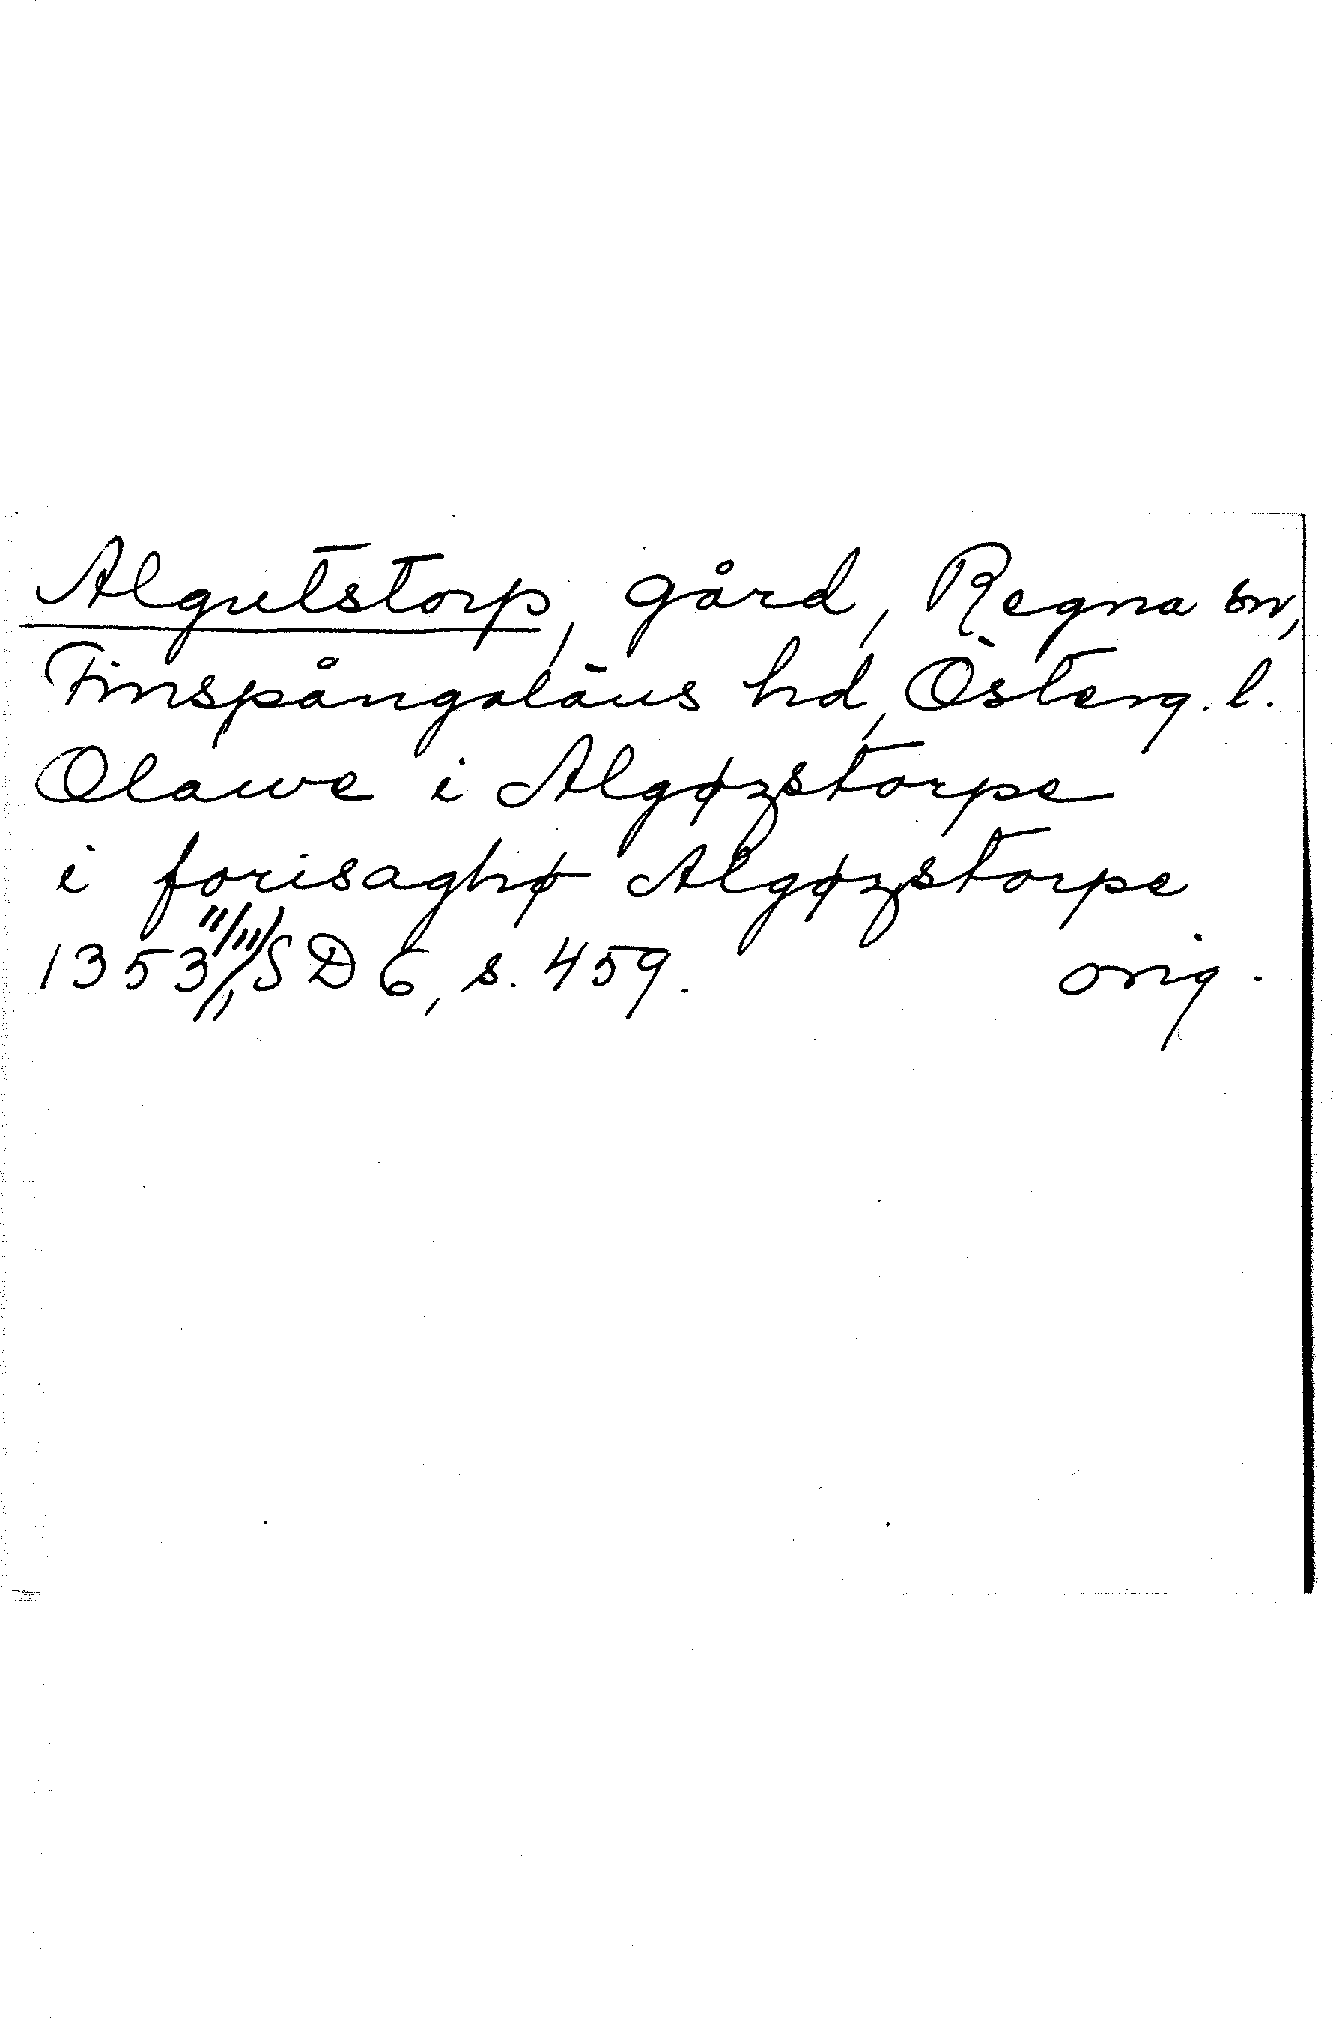 Algutstorp, gård, Regna sn,
Finspångaläns hd, Österg. l.
Olawe i Algøzstorpe
i forisaghø Algøzstorpe
1353 11/11 SD 6, s. 459. orig.